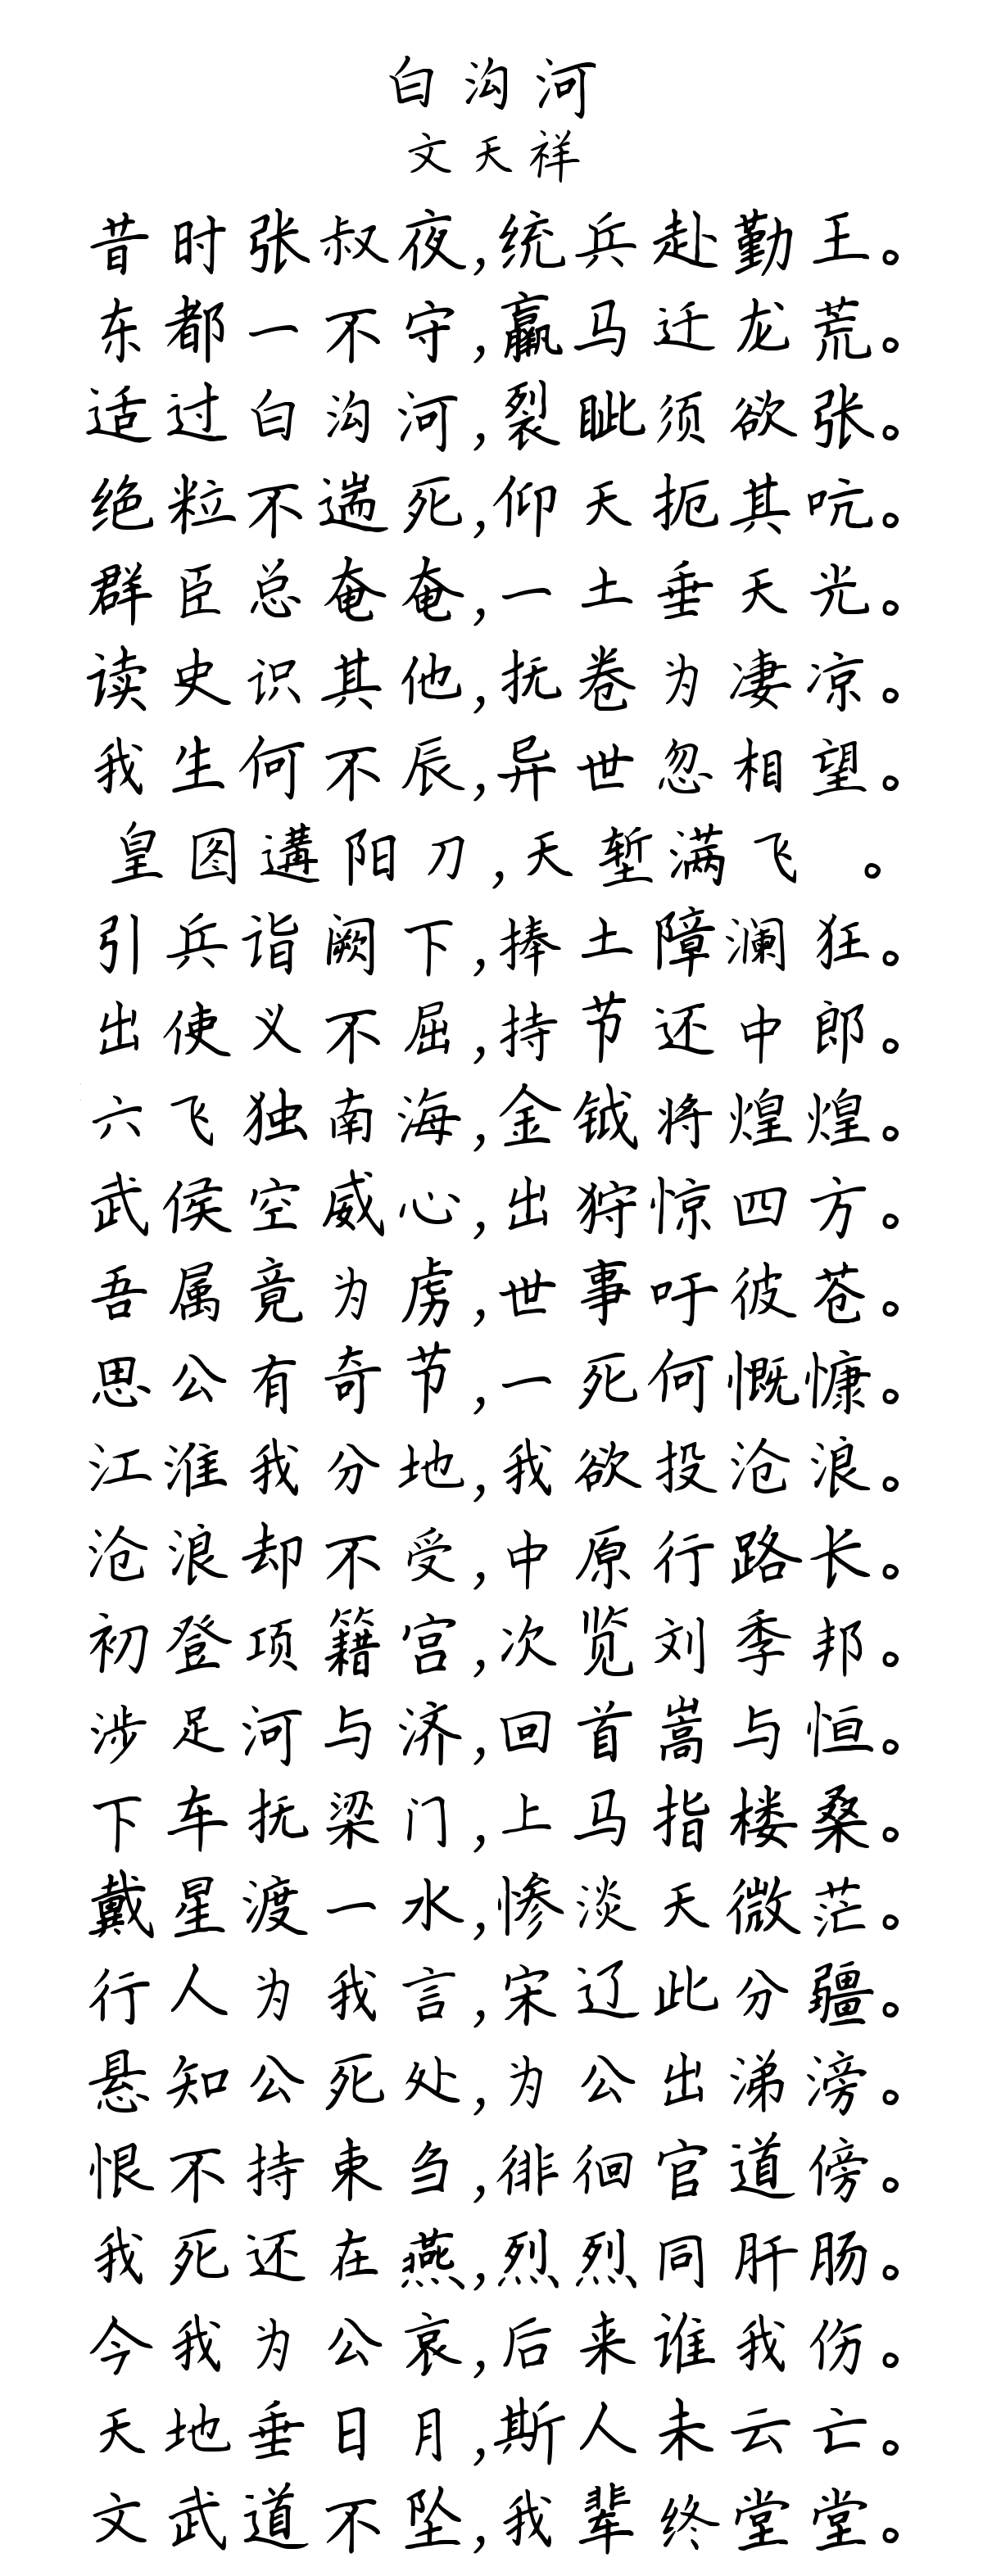 白沟河
文天祥
昔时张叔夜,统兵赴勤王。
东都一不守,羸马迁龙荒。
适过白沟河,裂眦须欲张。
绝粒不遄死,仰天扼其吭。
群臣总奄奄,一土垂天光。
读史识其他,抚卷为凄凉。
我生何不辰,异世忽相望。
皇图遘阳刀,天堑满飞 。
引兵诣阙下,捧土障澜狂。
出使义不屈,持节还中郎。
六飞独南海,金钺将煌煌。
武侯空威心,出狩惊四方。
吾属竟为虏,世事吁彼苍。
思公有奇节,一死何慨慷。
江淮我分地,我欲投沧浪。
沧浪却不受,中原行路长。
初登项籍宫,次览刘季邦。
涉足河与济,回首嵩与恒。
下车抚梁门,上马指楼桑。
戴星渡一水,惨淡天微茫。
行人为我言,宋辽此分疆。
悬知公死处,为公出涕滂。
恨不持束刍,徘徊官道傍。
我死还在燕,烈烈同肝肠。
今我为公哀,后来谁我伤。
天地垂日月,斯人未云亡。
文武道不坠,我辈终堂堂。